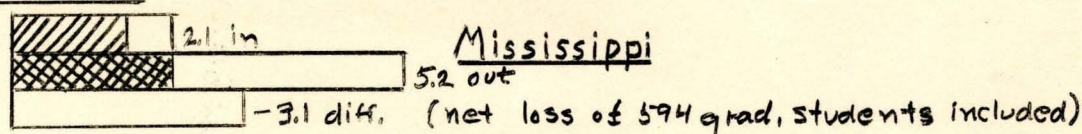 2.1 in
Mississippi
5.2 out
-3.1 diff. (net loss of 594 grad, students included)